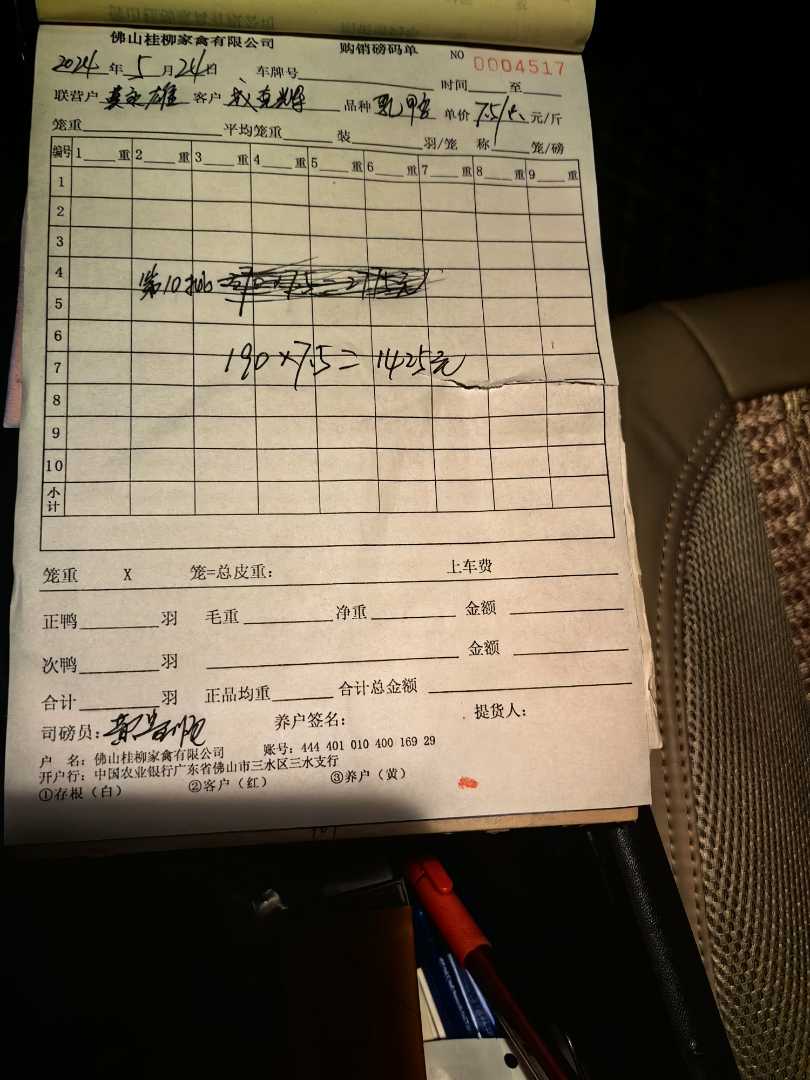 佛山桂柳家禽有限公司 购销磅码单 NO 0004517
2024年5月24日 车牌号 时间 至
联营户 雄 客户 品种 乳鸽 单价 7.5/斤 元/斤
笼重 平均笼重 装 羽/笼 称 笼/磅
编号 1 重 2 重 3 重 4 重 5 重 6 重 7 重 8 重 9 重
1
2
3
4
第10批
5
6
7
190×7.5=1425元
8
9
10
小计
笼重 X 笼=总皮重: 上车费
正鸭 羽 毛重 净重 金额
次鸭 羽 金额
合计 羽 正品均重 合计总金额
司磅员: 养户签名: 提货人:
户 名: 佛山桂柳家禽有限公司 账号: 444 401 010 400 169 29
开户行: 中国农业银行广东省佛山市三水区三水支行
①存根（白） ②客户（红） ③养户（黄）